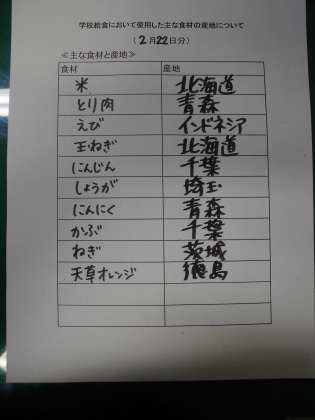 学校給食において使用した主な食材の産地について
(2月22日分)
≪主な食材と産地≫
食材 産地
米 北海道
とり肉 青森
えび インドネシア
玉ねぎ 北海道
にんじん 千葉
しょうが 埼玉
にんにく 青森
かぶ 千葉
ねぎ 茨城
天草オレンジ 徳島